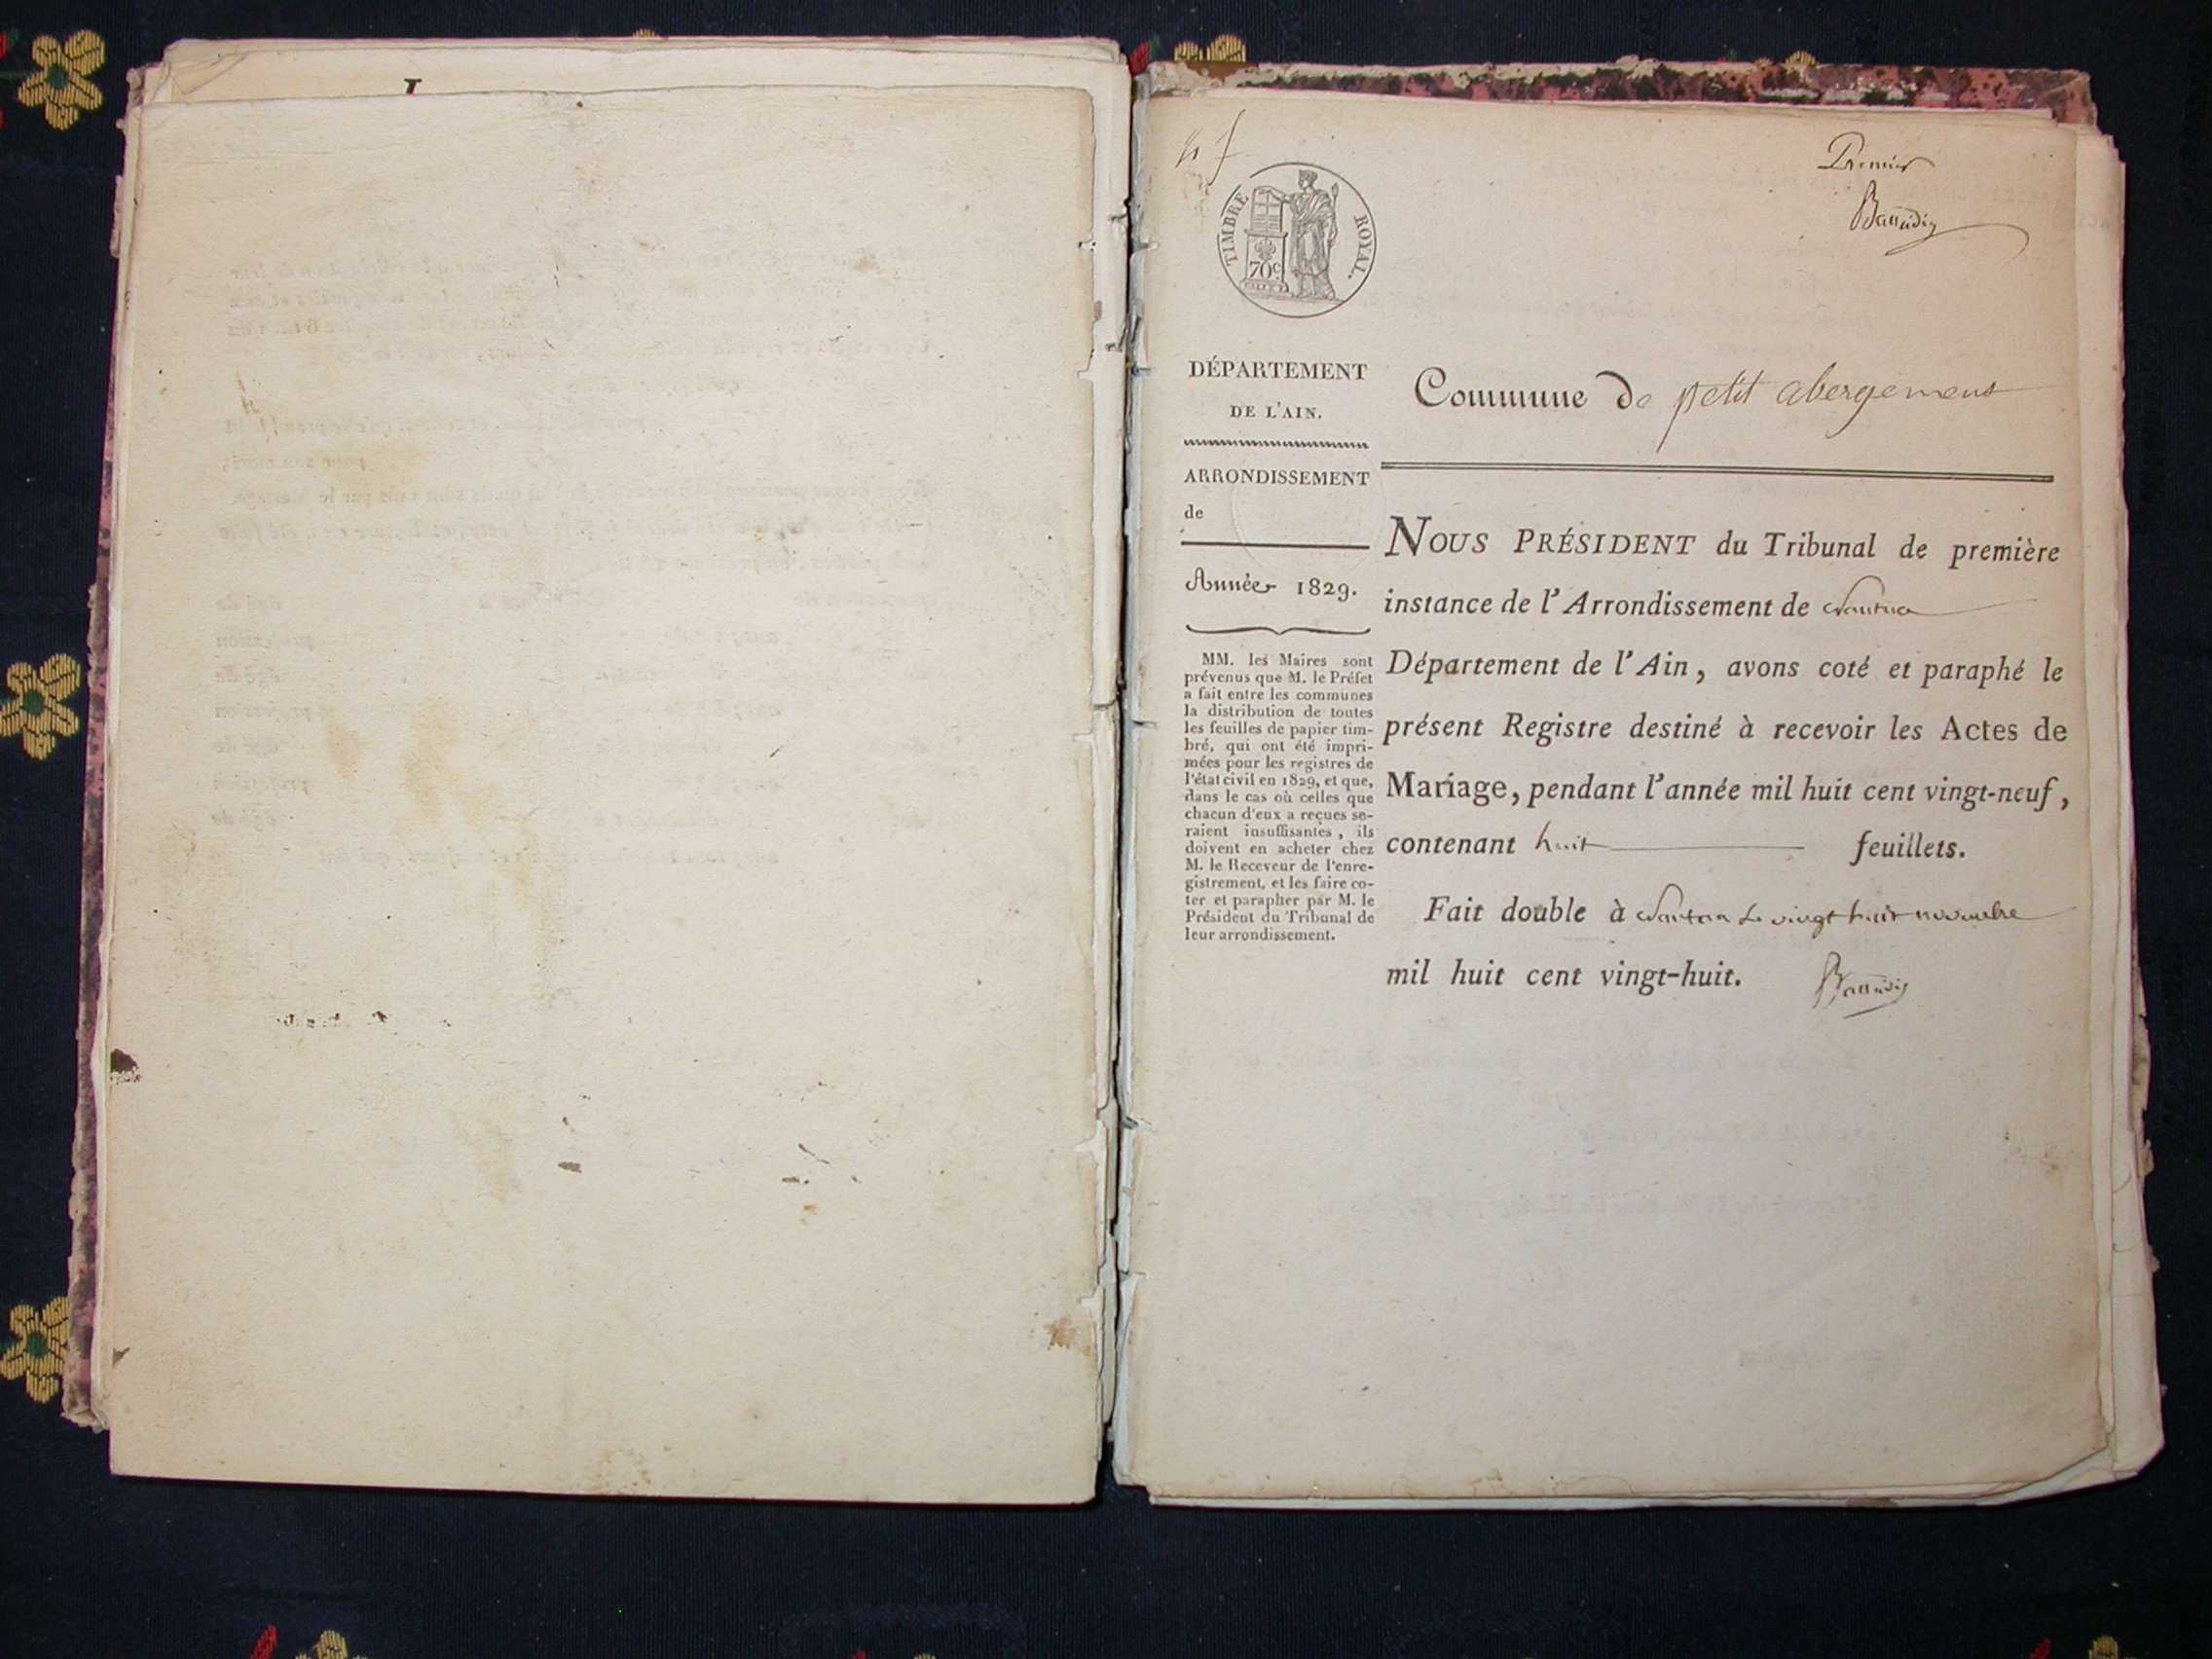 Premier
TIMBRE ROYAL.
70c
DÉPARTEMENT
DE L'AIN.
Commune de petit abergement
ARRONDISSEMENT
de
Année 1829.
MM. les Maires sont
prévenus que M. le Préfet
a fait entre les communes
la distribution de toutes
les feuilles de papier tim-
bré, qui ont été impri-
mées pour les registres de
l'état civil en 1829, et que,
dans le cas où celles que
chacun d'eux a reçues se-
raient insuffisantes, ils
doivent en acheter chez
M. le Receveur de l'enre-
gistrement, et les faire co-
ter et parapher par M. le
Président du Tribunal de
leur arrondissement.
NOUS PRÉSIDENT du Tribunal de première
instance de l'Arrondissement de Nantua
Département de l'Ain, avons coté et paraphé le
présent Registre destiné à recevoir les Actes de
Mariage, pendant l'année mil huit cent vingt-neuf,
contenant huit feuillets.
Fait double à Nantua le vingt huit novembre
mil huit cent vingt-huit.